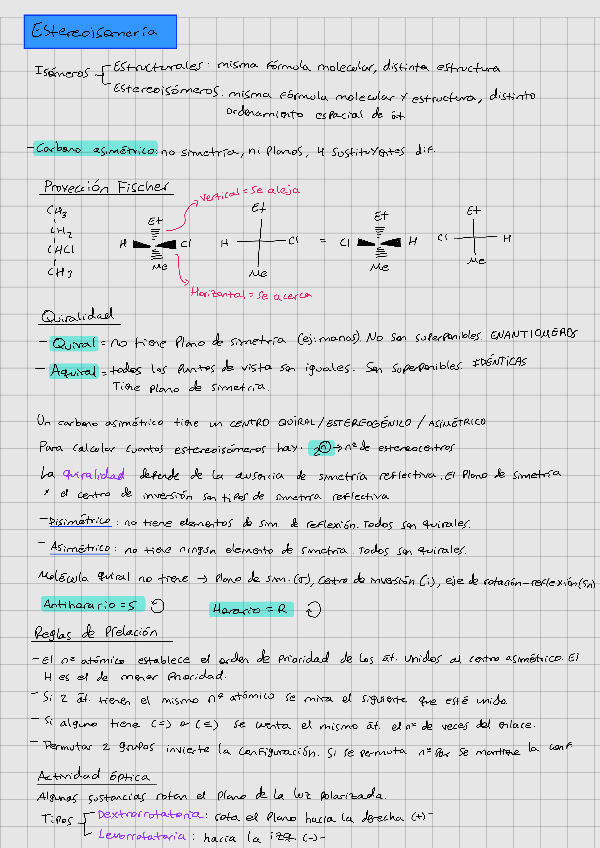 Estereoisomería
Isómeros
Estructurales: misma fórmula molecular, distinta estructura
Estereoisómeros: misma fórmula molecular y estructura, distinto
ordenamiento espacial de át.
- Carbono asimétrico: no simetría, ni planos, 4 sustituyentes dif.
Proyección Fischer
Vertical = se aleja
CH3
CH2
CHCl
CH3
Et
H Cl
Me
Et
H Cl
Me
=
Et
Cl H
Me
Et
Cl H
Me
Horizontal = se acerca
Quiralidad
- Quiral = no tiene plano de simetría (ej: manos). No son superponibles. ENANTIÓMEROS
- Aquiral = todos los puntos de vista son iguales. Son superponibles. IDÉNTICAS
Tiene plano de simetría.
Un carbono asimétrico tiene un CENTRO QUIRAL / ESTEREOGÉNICO / ASIMÉTRICO
Para calcular cuantos estereoisómeros hay: 2ⁿ → nº de estereocentros
La quiralidad depende de la ausencia de simetría reflectiva. El plano de simetría
y el centro de inversión son tipos de simetría reflectiva
- Disimétrico: no tiene elementos de sim. de reflexión. Todos son quirales.
- Asimétrico: no tiene ningún elemento de simetría. Todos son quirales.
Molécula quiral no tiene → Plano de sim. (σ), centro de inversión (i), eje de rotación-reflexión (Sn)
Antihorario = S
Horario = R
Reglas de Prelación
- El nº atómico establece el orden de prioridad de los át. unidos al centro asimétrico. El
H es el de menor prioridad.
- Si 2 át. tienen el mismo nº atómico se mira el siguiente que esté unido.
- Si alguno tiene (=) o (≡) se cuenta el mismo át. el nº de veces del enlace.
- Permutar 2 grupos invierte la configuración. Si se permuta nº par se mantiene la conf
Actividad óptica
Algunas sustancias rotan el plano de la luz polarizada.
Tipos
Dextrorrotatoria: rota el plano hacia la derecha (+)-
Levorrotatoria: hacia la izq (-)-